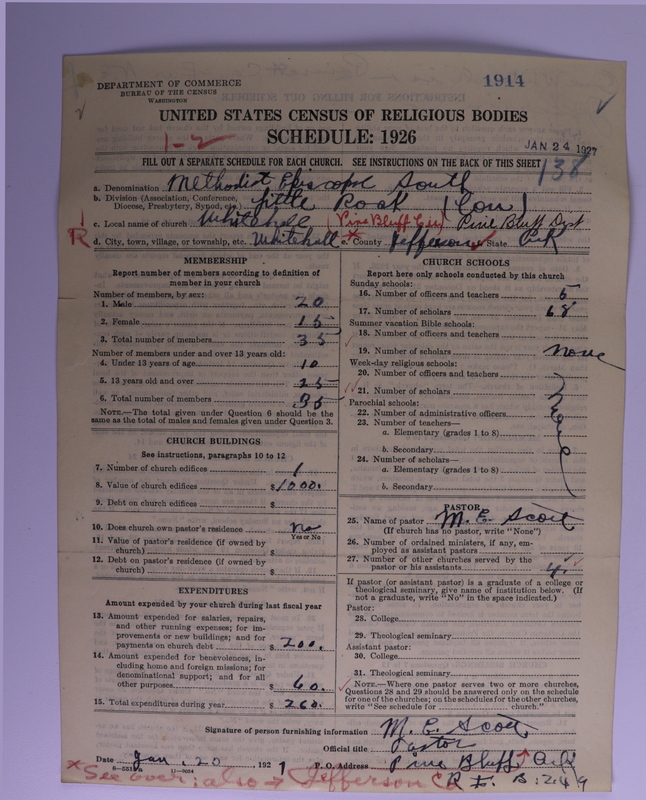 DEPARTMENT OF COMMERCE
BUREAU OF THE CENSUS
WASHINGTON
1914
UNITED STATES CENSUS OF RELIGIOUS BODIES
SCHEDULE: 1926
1-2
JAN 24 1927
138
FILL OUT A SEPARATE SCHEDULE FOR EACH CHURCH. SEE INSTRUCTIONS ON THE BACK OF THIS SHEET
a. Denomination Methodist Episcopal South
b. Division (Association, Conference, Diocese, Presbytery, Synod, etc.) Little Rock (Con)
c. Local name of church Whitehall (Pine Bluff Cir) Pine Bluff Dist
R
d. City, town, village, or township, etc. Whitehall e. County Jefferson State Ark
MEMBERSHIP
Report number of members according to definition of
member in your church
Number of members, by sex:
1. Male 20
2. Female 15
3. Total number of members 35
Number of members under and over 13 years old:
4. Under 13 years of age 10
5. 13 years old and over 25
6. Total number of members 35
NOTE.—The total given under Question 6 should be the
same as the total of males and females given under Question 3.
CHURCH BUILDINGS
See instructions, paragraphs 10 to 12
7. Number of church edifices 1
8. Value of church edifices $1000.
9. Debt on church edifices $
10. Does church own pastor's residence No
Yes or No
11. Value of pastor's residence (if owned by
church) $
12. Debt on pastor's residence (if owned by
church) $
EXPENDITURES
Amount expended by your church during last fiscal year
13. Amount expended for salaries, repairs,
and other running expenses; for im-
provements or new buildings; and for
payments on church debt $200.
14. Amount expended for benevolences, in-
cluding home and foreign missions; for
denominational support; and for all
other purposes $60.
15. Total expenditures during year $260.
CHURCH SCHOOLS
Report here only schools conducted by this church
Sunday schools:
16. Number of officers and teachers 5
17. Number of scholars 68
Summer vacation Bible schools:
18. Number of officers and teachers
19. Number of scholars none
Week-day religious schools:
20. Number of officers and teachers
21. Number of scholars
Parochial schools:
22. Number of administrative officers
23. Number of teachers—
a. Elementary (grades 1 to 8)
b. Secondary
24. Number of scholars—
a. Elementary (grades 1 to 8)
b. Secondary
none
PASTOR
25. Name of pastor M. E. Scott
(If church has no pastor, write "None")
26. Number of ordained ministers, if any, em-
ployed as assistant pastors
27. Number of other churches served by the
pastor or his assistants 4
If pastor (or assistant pastor) is a graduate of a college or
theological seminary, give name of institution below. (If
not a graduate, write "No" in the space indicated.)
Pastor:
28. College
29. Theological seminary
Assistant pastor:
30. College
31. Theological seminary
NOTE.—Where one pastor serves two or more churches,
Questions 28 and 29 should be answered only on the schedule
for one of the churches; on the schedules for the other churches,
write "See schedule for church."
Signature of person furnishing information M. E. Scott
Official title Pastor
Date Jan. 20, 1921 P. O. Address Pine Bluff Ark
* See over; also → Jefferson Co R. F. B. 249